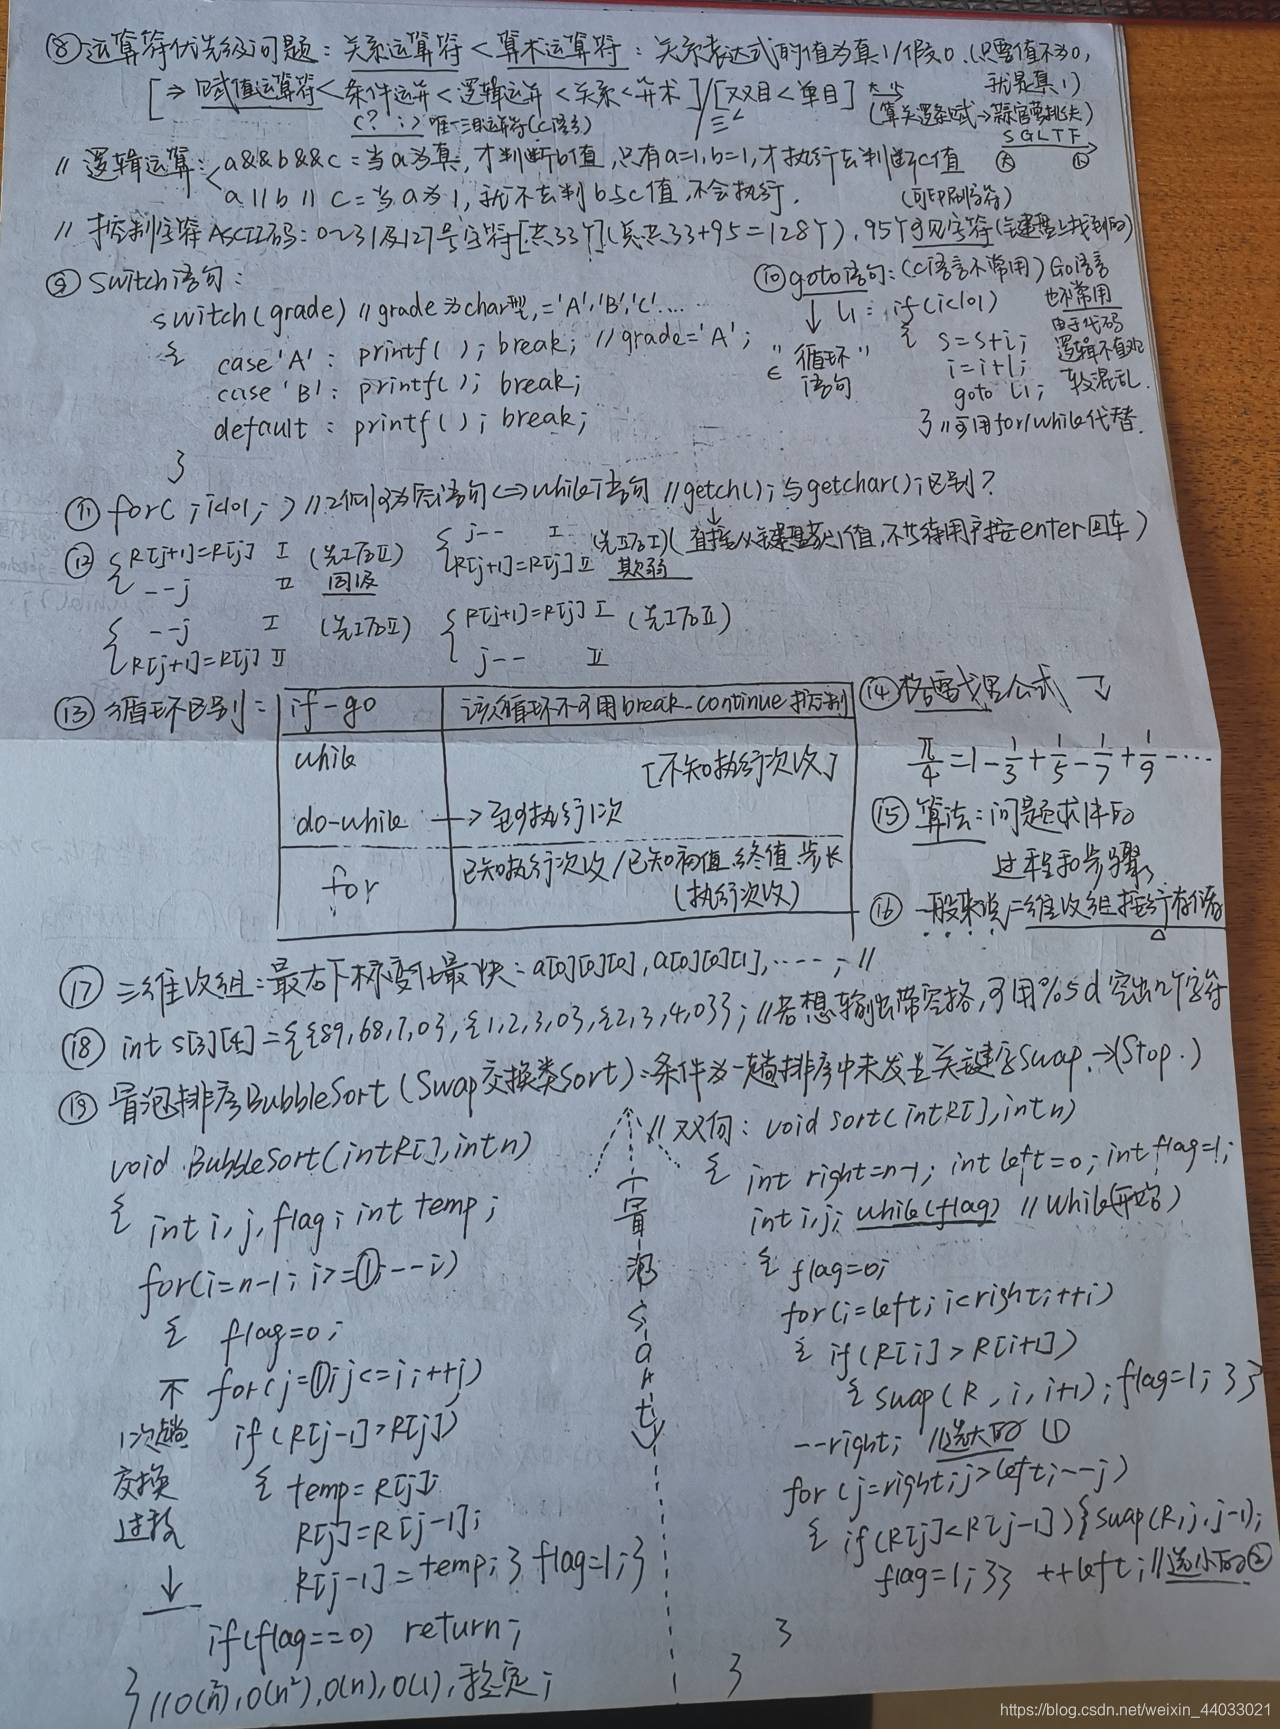 ⑧ 运算符优先级问题：关系运算符<算术运算符：关系表达式的值为真1/假0.(只要值不为0,
就是真1)
[⇒ 赋值运算符<条件运算<逻辑运算<关系<算术]/[双目<单目]
(? : ) 唯一三目运算符(C语言)
(算关逻条赋→蒜官要挑夫)
SGLTF
大 小
// 逻辑运算: a&&b&&c = 当a为真, 才判断b值, 只有a=1, b=1, 才执行去判断c值
a||b||c = 当a为1, 就不去判b与c值, 不会执行.
(可印刷字符)
// 控制字符ASCII码: 0~31及127号字符[共33个](总共33+95=128个), 95个可见字符(键盘上找到的)
⑨ switch语句:
switch(grade) // grade为char型, ='A','B','C'....
{
case 'A': printf( ); break; // grade='A';
case 'B': printf( ); break;
default : printf( ); break;
}
⑩ goto语句: (C语言不常用) Go语言
也不常用
由于代码
逻辑不直观
较混乱.
∈ "循环"
语句
L1: if(i<101)
{ s=s+i;
i=i+1;
goto L1;
} // 可用for/while代替.
⑪ for( ; i<101; ) // 2侧为空语句<=>while语句 // getch(); 与getchar(); 区别?
(直接从键盘获入值, 不等待用户按enter回车)
⑫ { R[j+1]=R[j] Ⅰ
--j Ⅱ
(先Ⅰ后Ⅱ)
同级
{ j-- Ⅰ
R[j+1]=R[j] Ⅱ
(先Ⅱ后Ⅰ)
其弱
{ --j Ⅰ
R[j+1]=R[j] Ⅱ
(先Ⅰ后Ⅱ)
{ R[j+1]=R[j] Ⅰ
j-- Ⅱ
(先Ⅰ后Ⅱ)
⑬ 循环区别:
if-go 该循环不可用break-continue控制
while [不知执行次数]
do-while → 至少执行1次
for 已知执行次数/已知初值、终值、步长
(执行次数)
⑭ 格雷戈里公式
π/4=1-1/3+1/5-1/7+1/9-...
⑮ 算法: 问题求解的
过程和步骤.
⑯ 一般来说二维数组按行存储
⑰ 三维数组: 最右下标变化最快: a[0][0][0], a[0][0][1], ....; //
⑱ int s[3][4]={{89,68,7,0},{1,2,3,0},{2,3,4,0}}; // 若想输出带空格, 可用%5d空出n个字符
⑲ 冒泡排序BubbleSort (Swap交换类Sort): 条件为一趟排序中未发生关键字Swap.→(Stop.)
void BubbleSort(int R[], int n)
{ int i, j, flag; int temp;
for(i=n-1; i>=1; --i)
{ flag=0;
for(j=1; j<=i; ++j)
if(R[j-1]>R[j])
{ temp=R[j];
R[j]=R[j-1];
R[j-1]=temp; } flag=1; }
if(flag==0) return;
} // O(n²), O(n²), O(n), O(1), 稳定;
1次趟
交换
过程
↓
冒泡Sort
// 双向: void sort(int R[], int n)
{ int right=n-1; int left=0; int flag=1;
int i,j; while(flag) // while(开始)
{ flag=0;
for(i=left; i<right; ++i)
{ if(R[i]>R[i+1])
{ swap(R, i, i+1); flag=1; }}
--right; // 选大的 ①
for(j=right; j>left; --j)
{ if(R[j]<R[j-1]){ swap(R, j, j-1);
flag=1; }} ++left; // 选小的②
}
}
https://blog.csdn.net/weixin_44033021